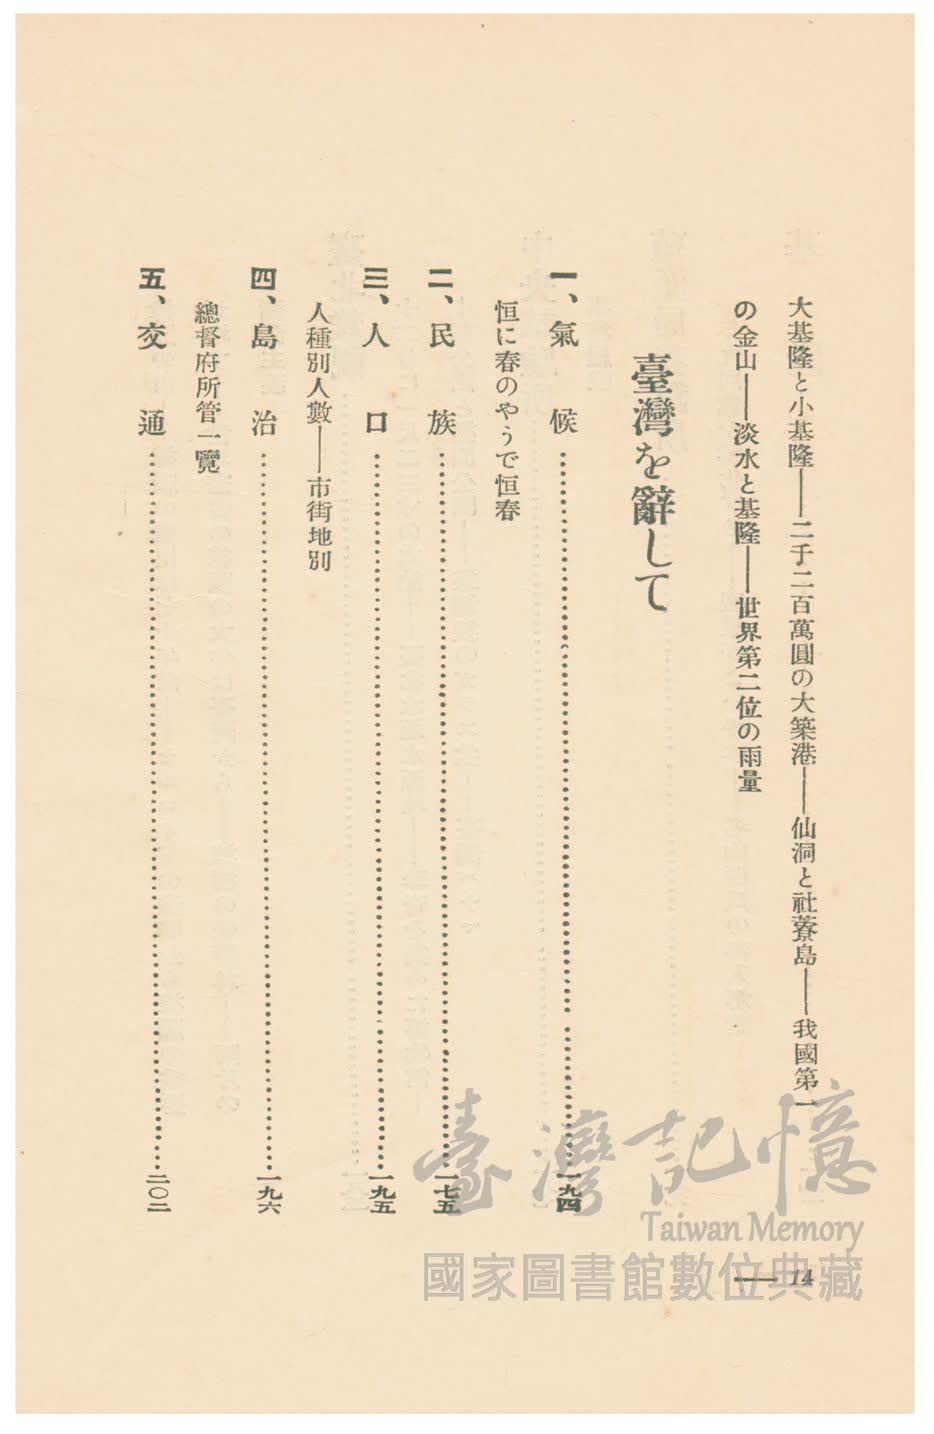 大基隆と小基隆――二千二百萬圓の大築港――仙洞と社藔島――我國第一
の金山――淡水と基隆――世界第二位の雨量
臺灣を辭して
一、氣候……一九四
恒に春のやうで恒春
二、民族……一七五
三、人口……一九五
人種別人數――市街地別
四、島治……一九六
總督府所管一覽
五、交通……二〇二
― 14
臺灣記憶
Taiwan Memory
國家圖書館數位典藏